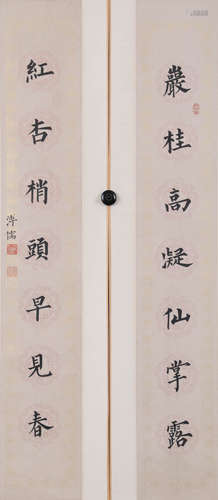 巖桂高凝仙掌露
紅杏梢頭早見春
溥儒